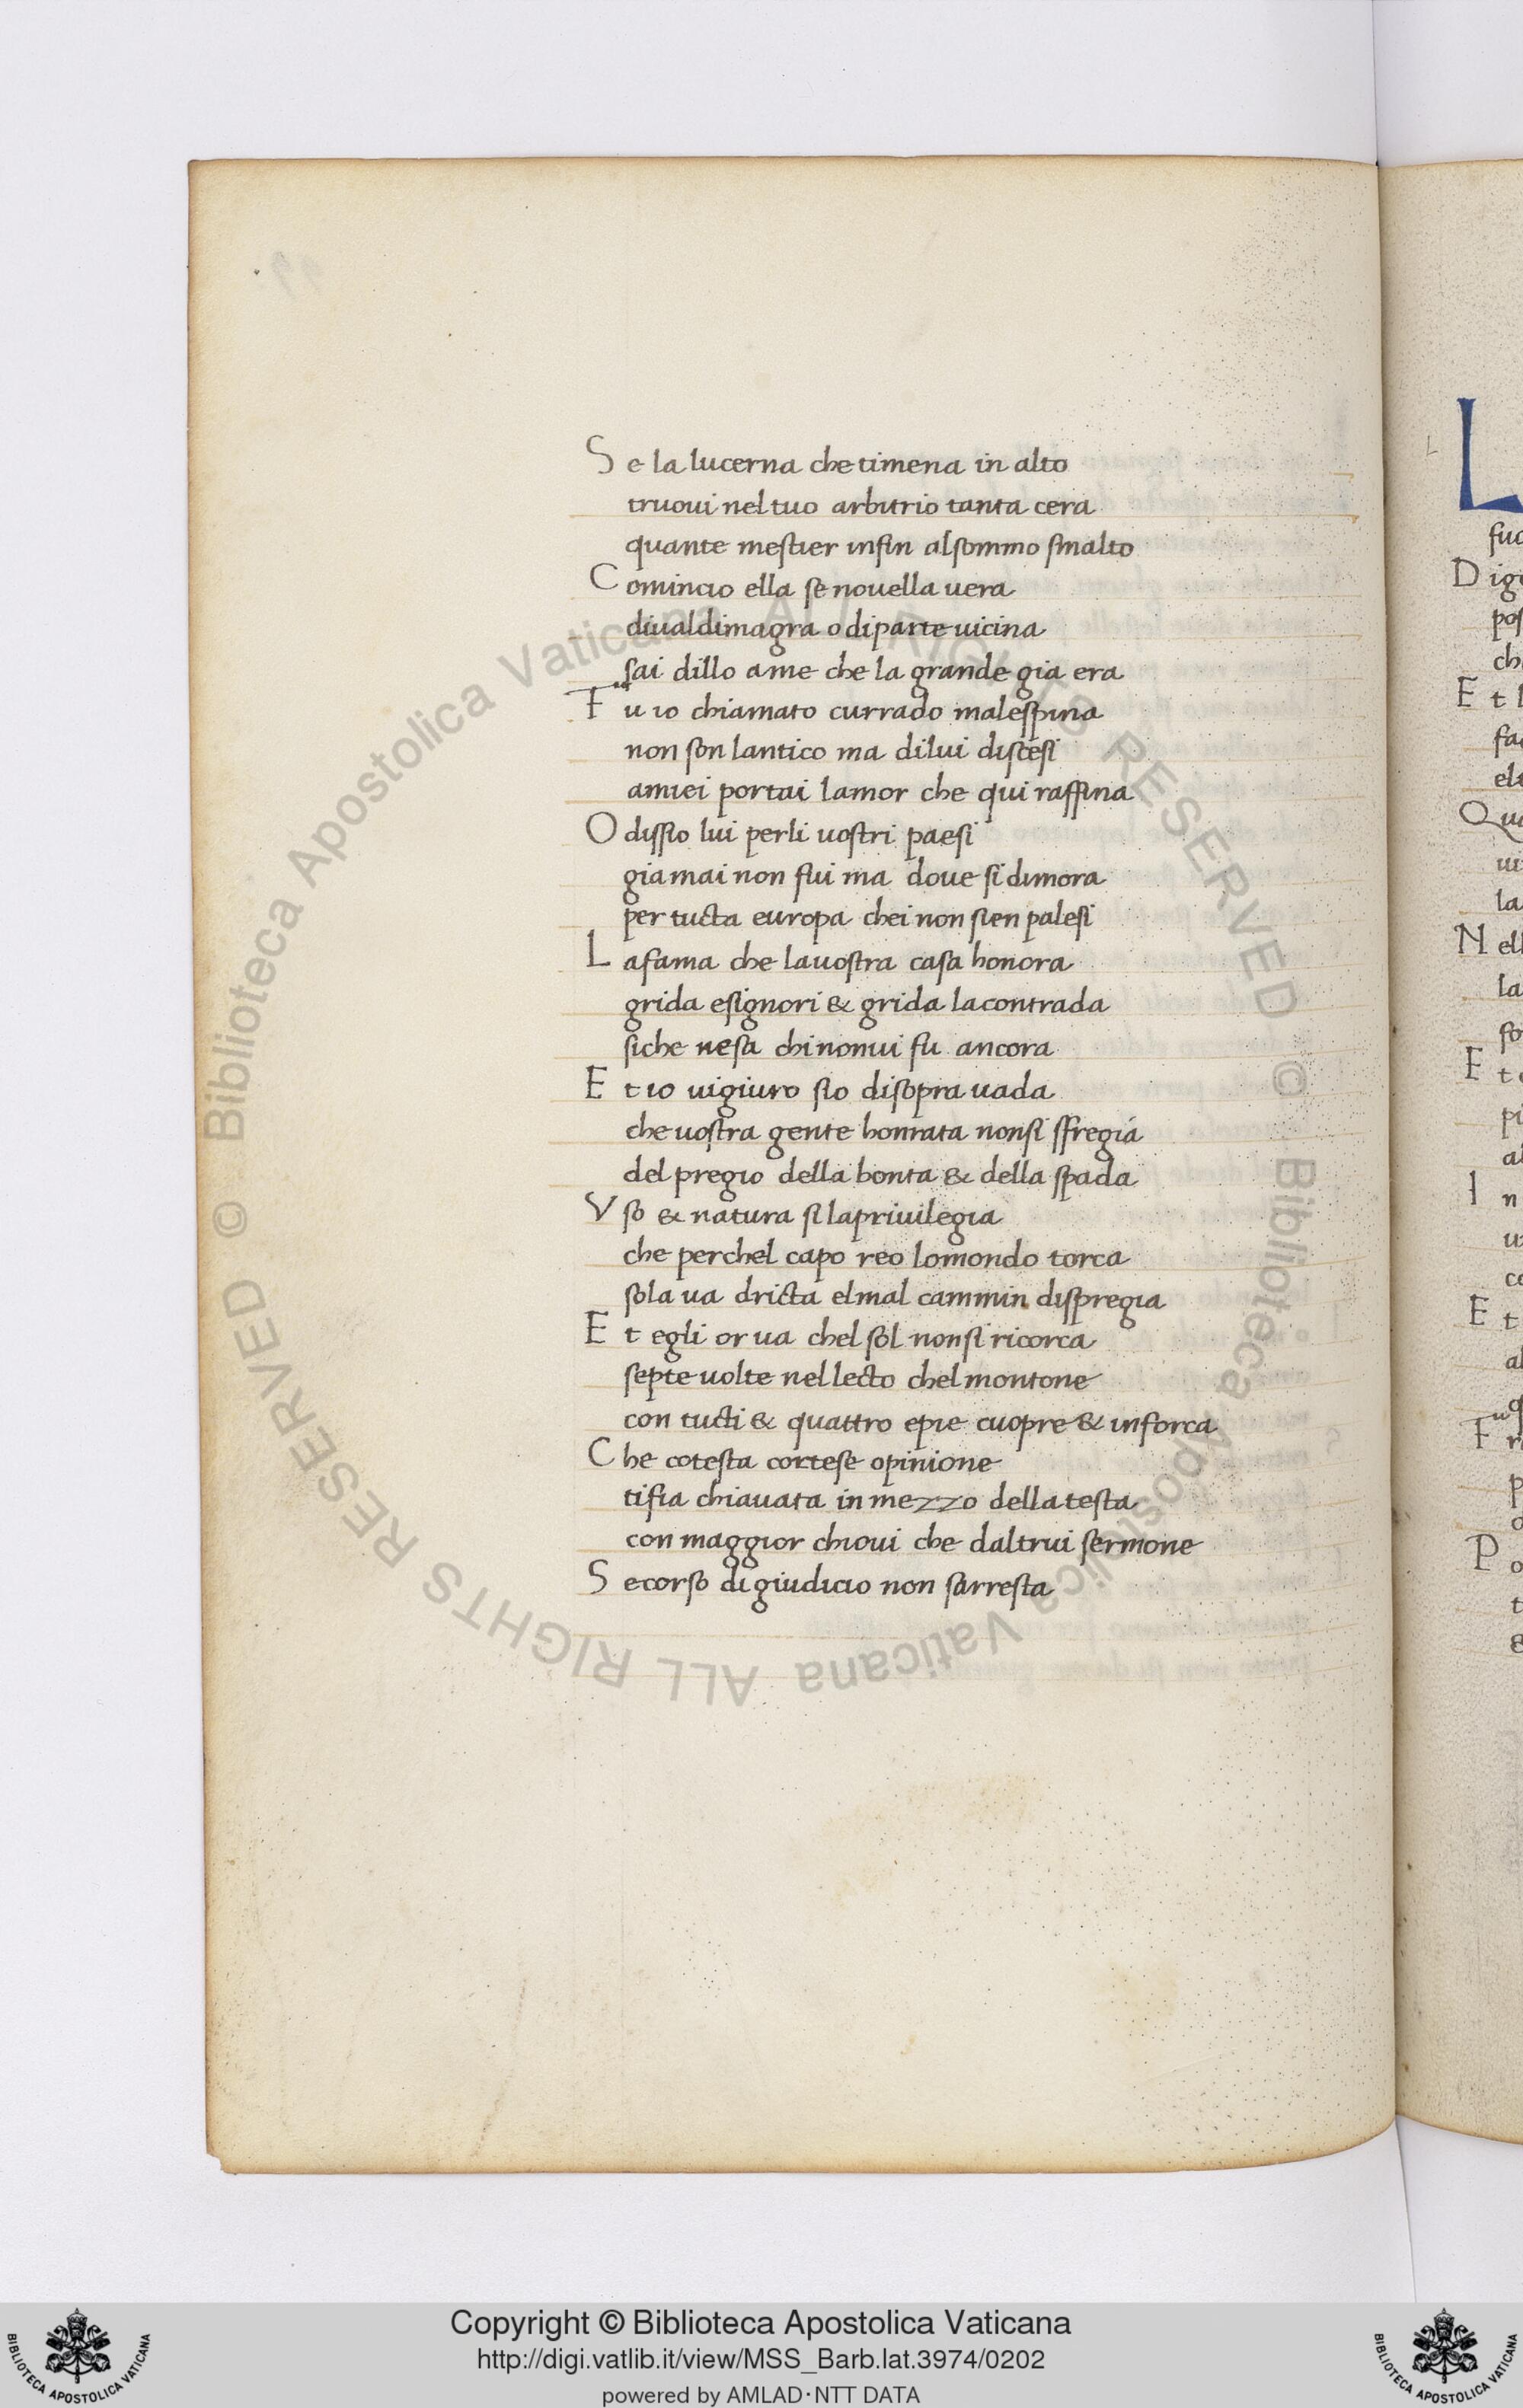 Se la lucerna che ti mena in alto
truoui nel tuo arbitrio tanta cera
quante meſtier infin al ſommo ſmalto
Comincio ella ſe nouella uera
di ualdimagra o di parte uicina
ſai dillo a me che la grande gia era
Fu io chiamato currado maleſpina
non ſon lantico ma di lui diſceſi
a miei portai lamor che qui raffina
O diſſio lui per li uoſtri paeſi
giamai non fui ma doue ſi dimora
per tucta europa chei non ſien paleſi
La fama che la uoſtra caſa honora
grida eſignori & grida la contrada
ſiche ne ſa chi non ui fu ancora
Et io ui giuro ſio di ſopra uada
che uoſtra gente honrata non ſi ſfregia
del pregio della bonta & della ſpada
Vſo & natura ſi la priuilegia
che perchel capo reo lo mondo torca
ſola ua dricta el mal cammin diſpregia
Et egli or ua chel ſol non ſi ricorca
ſepte uolte nel lecto chel montone
con tucti & quattro e pie cuopre & inforca
Che coteſta corteſe opinione
ti fia chiauata in mezzo della teſta
con maggior chioui che daltrui ſermone
Se corſo di giudicio non ſarreſta
L
D
E t
Q
N
E t
I n
E t
F
P
© Biblioteca Apostolica Vaticana ALL RIGHTS RESERVED © Biblioteca Apostolica Vaticana ALL RIGHTS RESERVED
Copyright © Biblioteca Apostolica Vaticana
http://digi.vatlib.it/view/MSS_Barb.lat.3974/0202
powered by AMLAD·NTT DATA
BIBLIOTECA APOSTOLICA VATICANA
BIBLIOTECA APOSTOLICA VATICANA